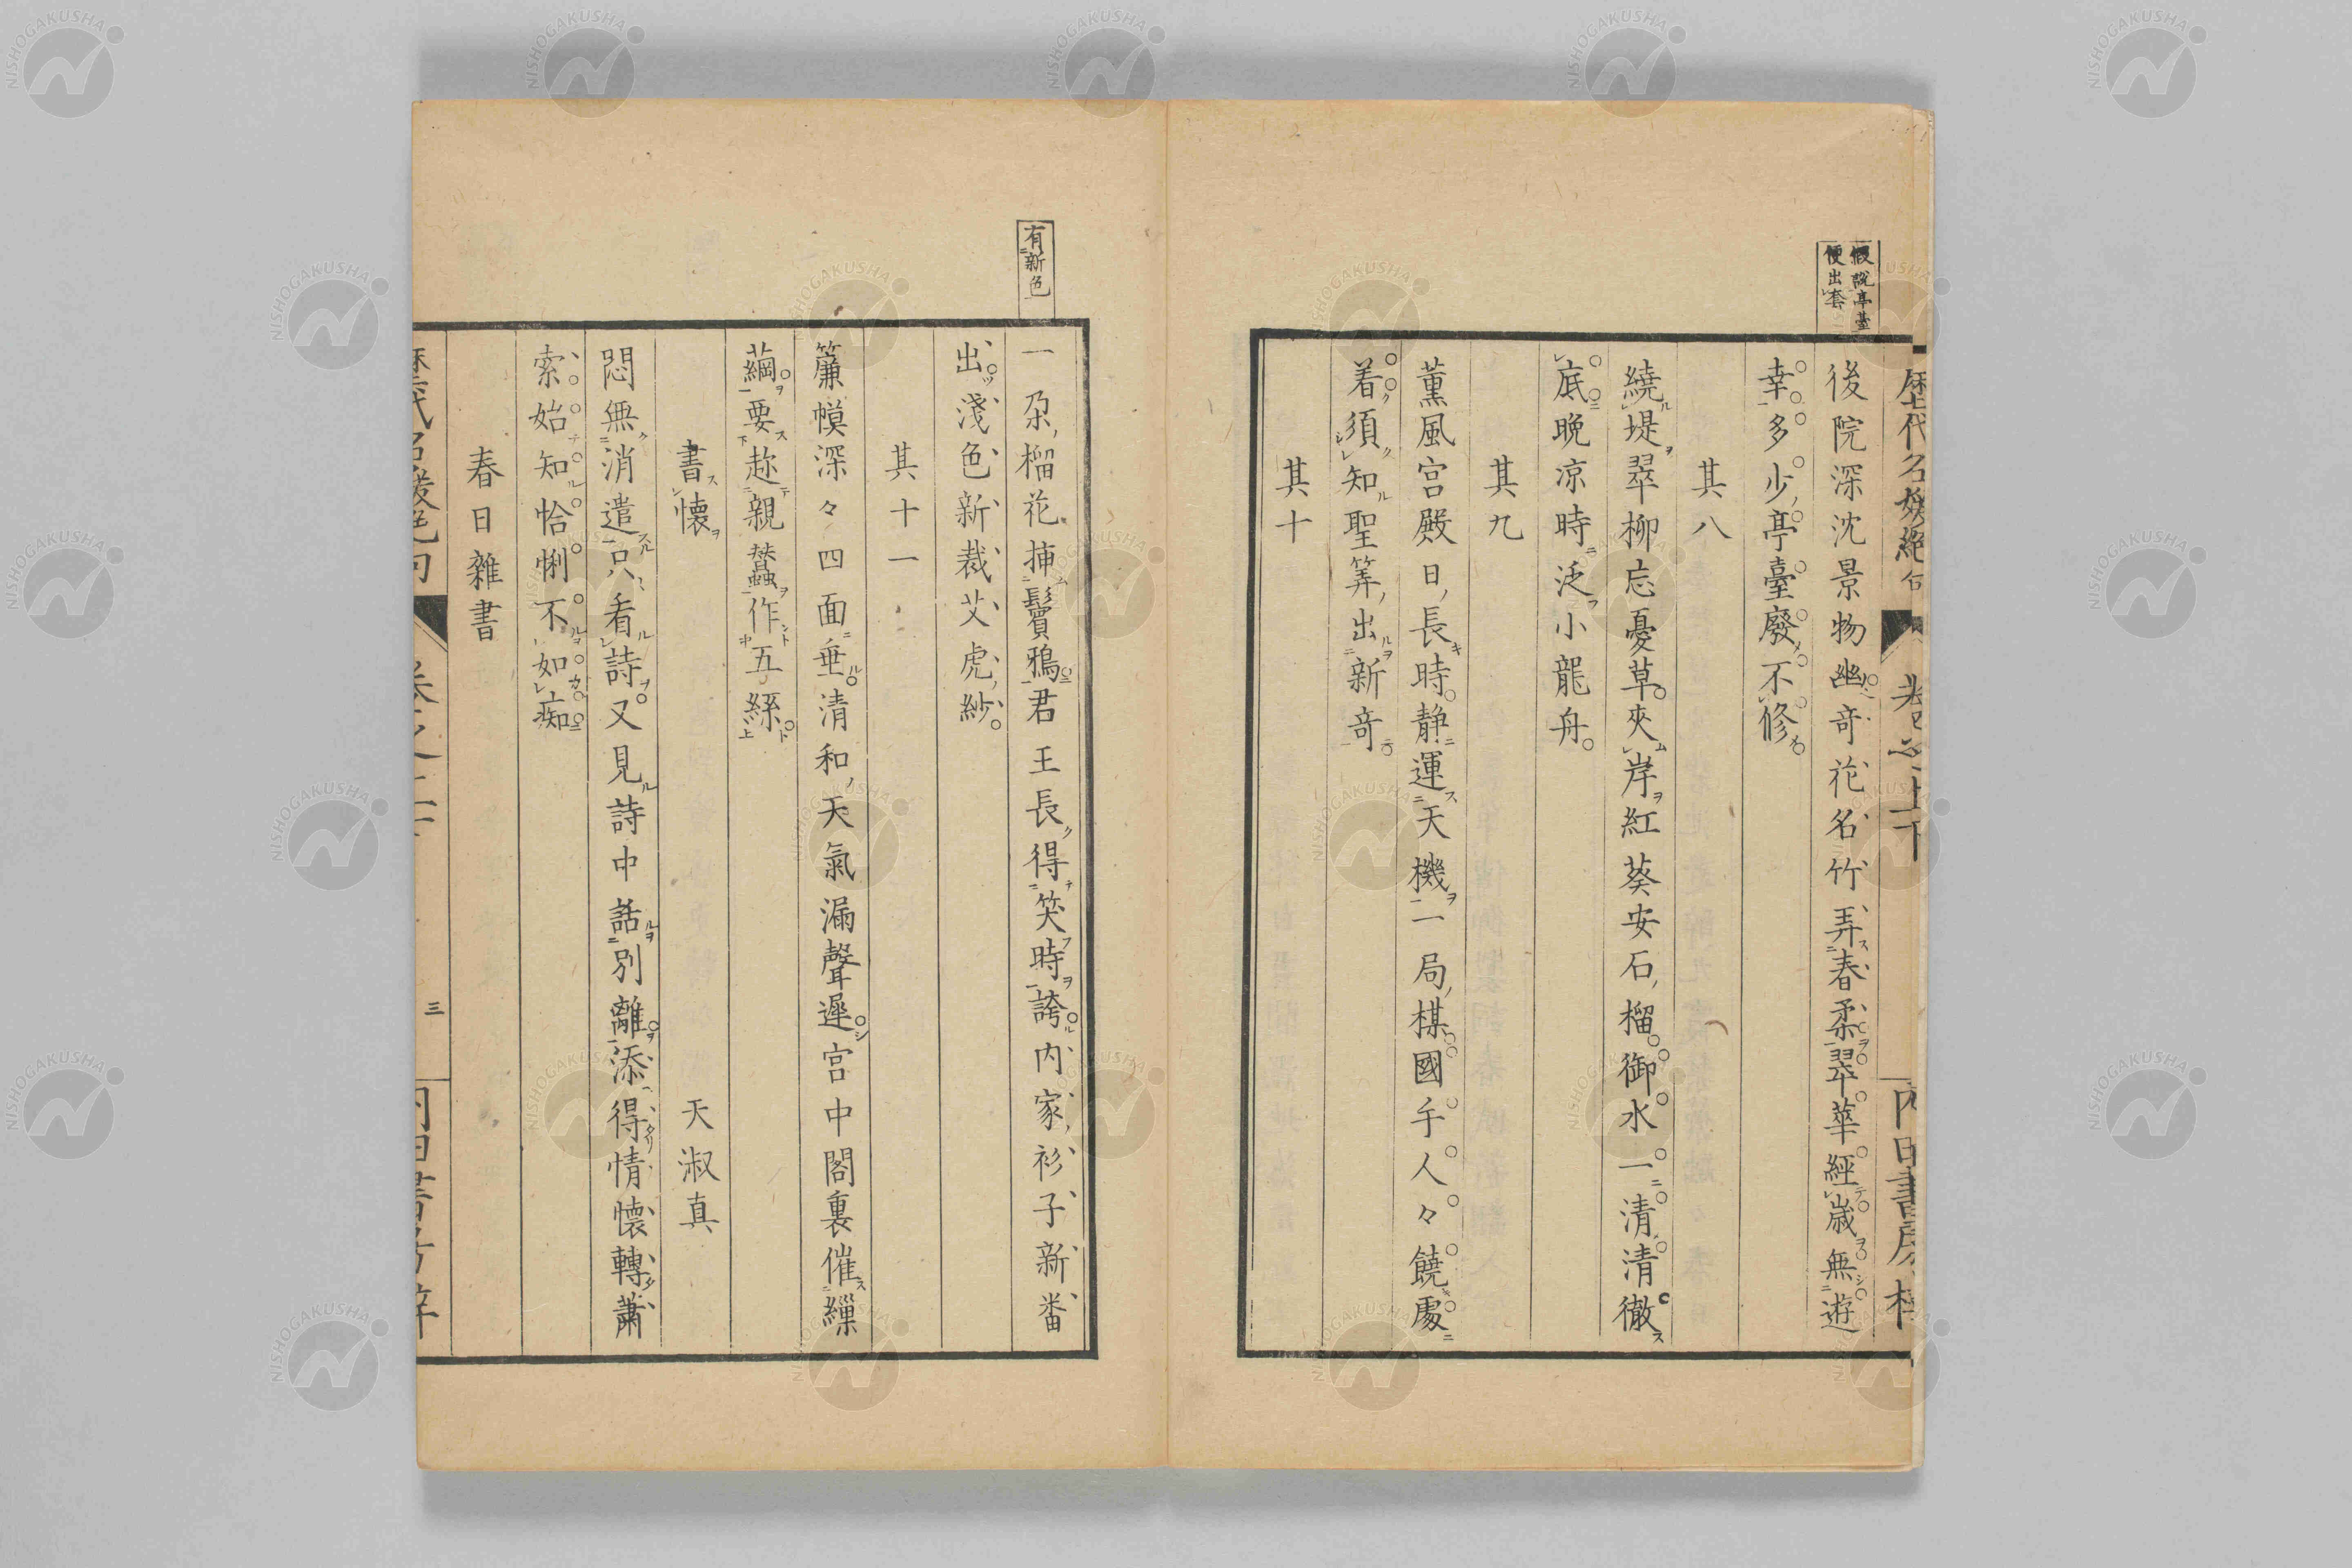 假說亭臺
便出套
歷代名媛絕句
內田書房梓
後院深沈景物幽奇花名竹弄春柔翠華經歲無遊
幸多少亭臺廢不修
其八
繞堤翠柳忘憂草夾岸紅葵安石榴御水一清清徹
底晚凉時泛小龍舟
其九
薰風宮殿日長時静運天機一局棋國手人々饒處
着須知聖筭出新奇
其十
有新色
一朶榴花揷鬢鴉君王長得笑時誇内家衫子新番
出淺色新裁艾虎紗
其十一
簾幙深々四面垂清和天氣漏聲遲宮中閣裏催繅
繭要趂親蠶作五絲
書懷 天淑真
悶無消遣只看詩又見詩中話別離添得情懷轉蕭
索始知恰悧不如痴
春日雜書
三
NISHOGAKUSHA